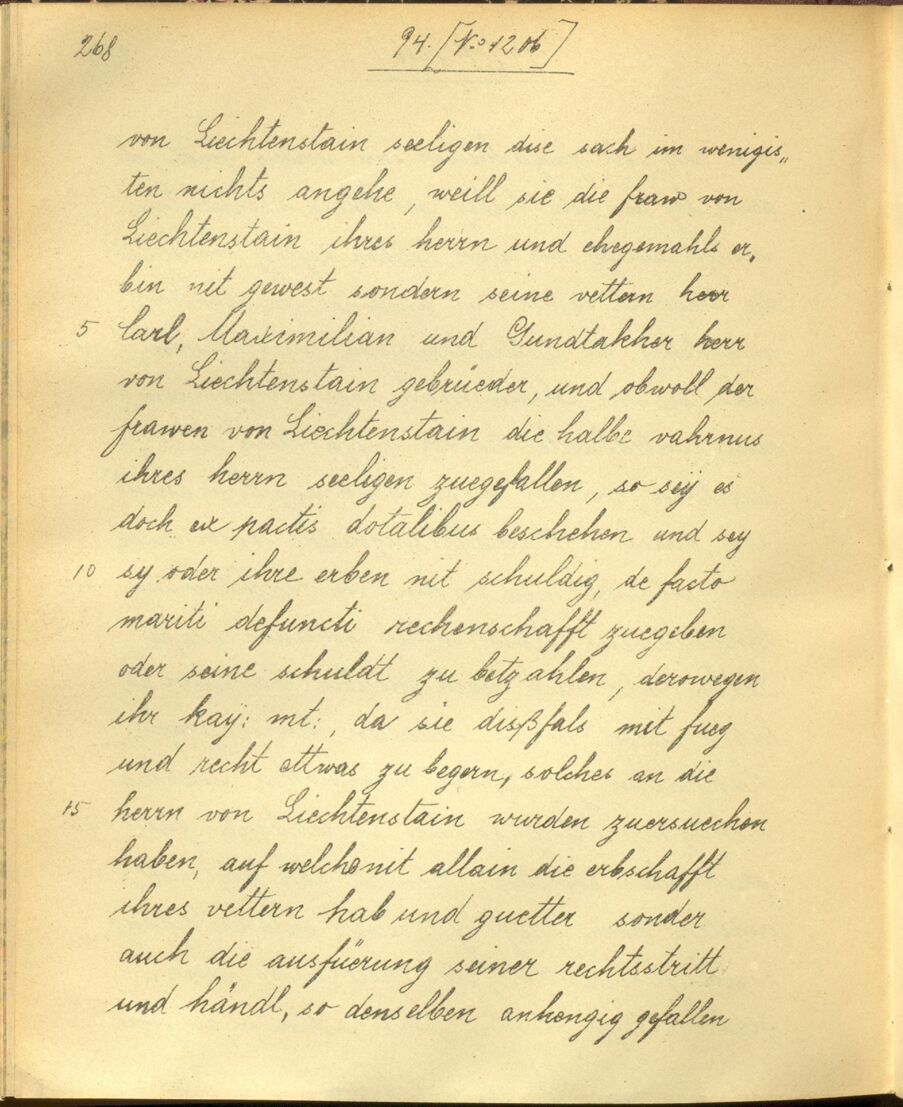 268
94. [No 1206]
von Liechtenstain seeligen dise sach im wenigis„
ten nichts angehe, weill sie die fraw von
Liechtenstain ihres herrn und ehegemahls er„
bin nit gewest sondern seine vettern herr
5 Carl, Maximilian und Gundtakher herr
von Liechtenstain gebrüeder, und obwoll der
frawen von Liechtenstain die halbe vahrnus
ihres herrn seeligen zuegefallen, so seÿ es
doch ex pactis dotalibus beschehen und sey
10 sy oder ihre erben nit schuldig, de facto
mariti defuncti rechenschafft zuegeben
oder seine schuldt zu betzahlen, derowegen
ihr kaÿ: mt:, da sie disßfals mit fueg
und recht ettwas zu begern, solches an die
15 herrn von Liechtenstain wurden zuersuechen
haben, auf welche nit allain die erbschafft
ihres vettern hab und guetter sonder
auch die ausfüerung seiner rechtsstritt
und händl, so denselben anhengig gefallen